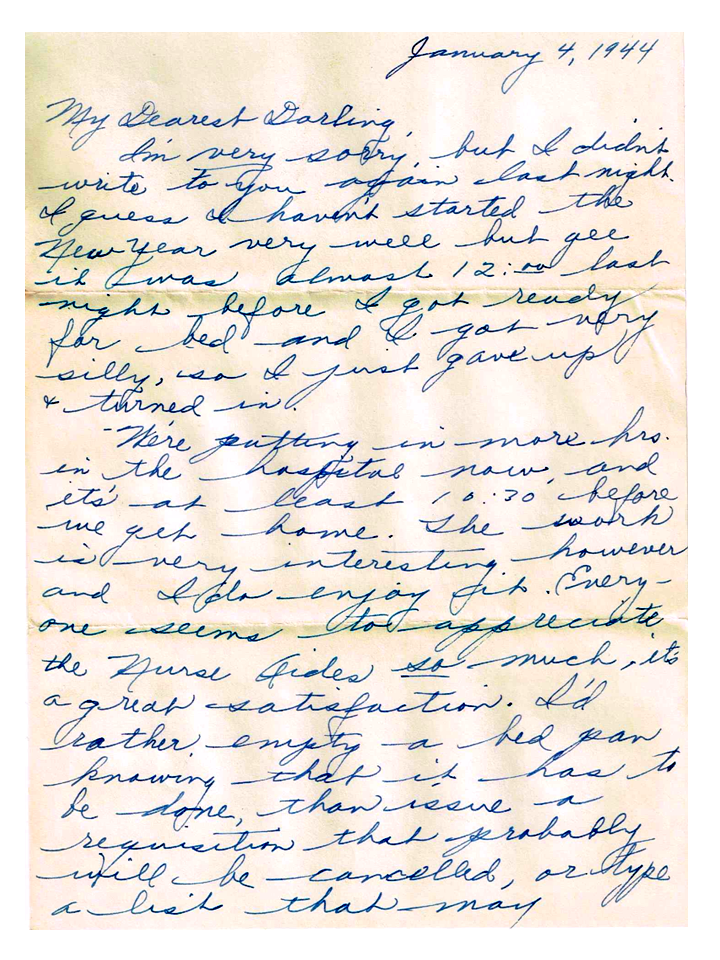 January 4, 1944
My Dearest Darling,
I'm very sorry, but I didn't
write to you again last night.
I guess I haven't started the
New Year very well but gee
it was almost 12:00 last
night before I got ready
for bed and I got very
silly, so I just gave up
& turned in.
We're putting in more hrs.
in the hospital now, and
it's at least 10:30 before
we get home. The work
is very interesting however
and I do enjoy it. Every-
one seems to appreciate
the Nurse Aides so much, it's
a great satisfaction. I'd
rather empty a bed pan
knowing that it has to
be done, than issue a
requisition that probably
will be cancelled, or type
a list that may